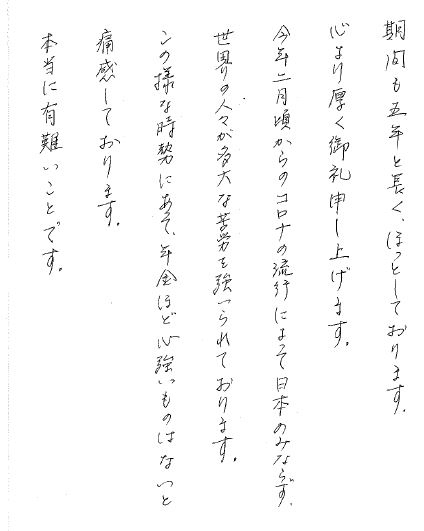 期間も五年と長く、ほっとしております。
心より厚く御礼申し上げます。
今年二月頃からのコロナの流行によって日本のみならず、
世界の人々が多大な苦労を強いられております。
この様な時勢にあって、年金ほど心強いものはないと
痛感しております。
本当に有難いことです。